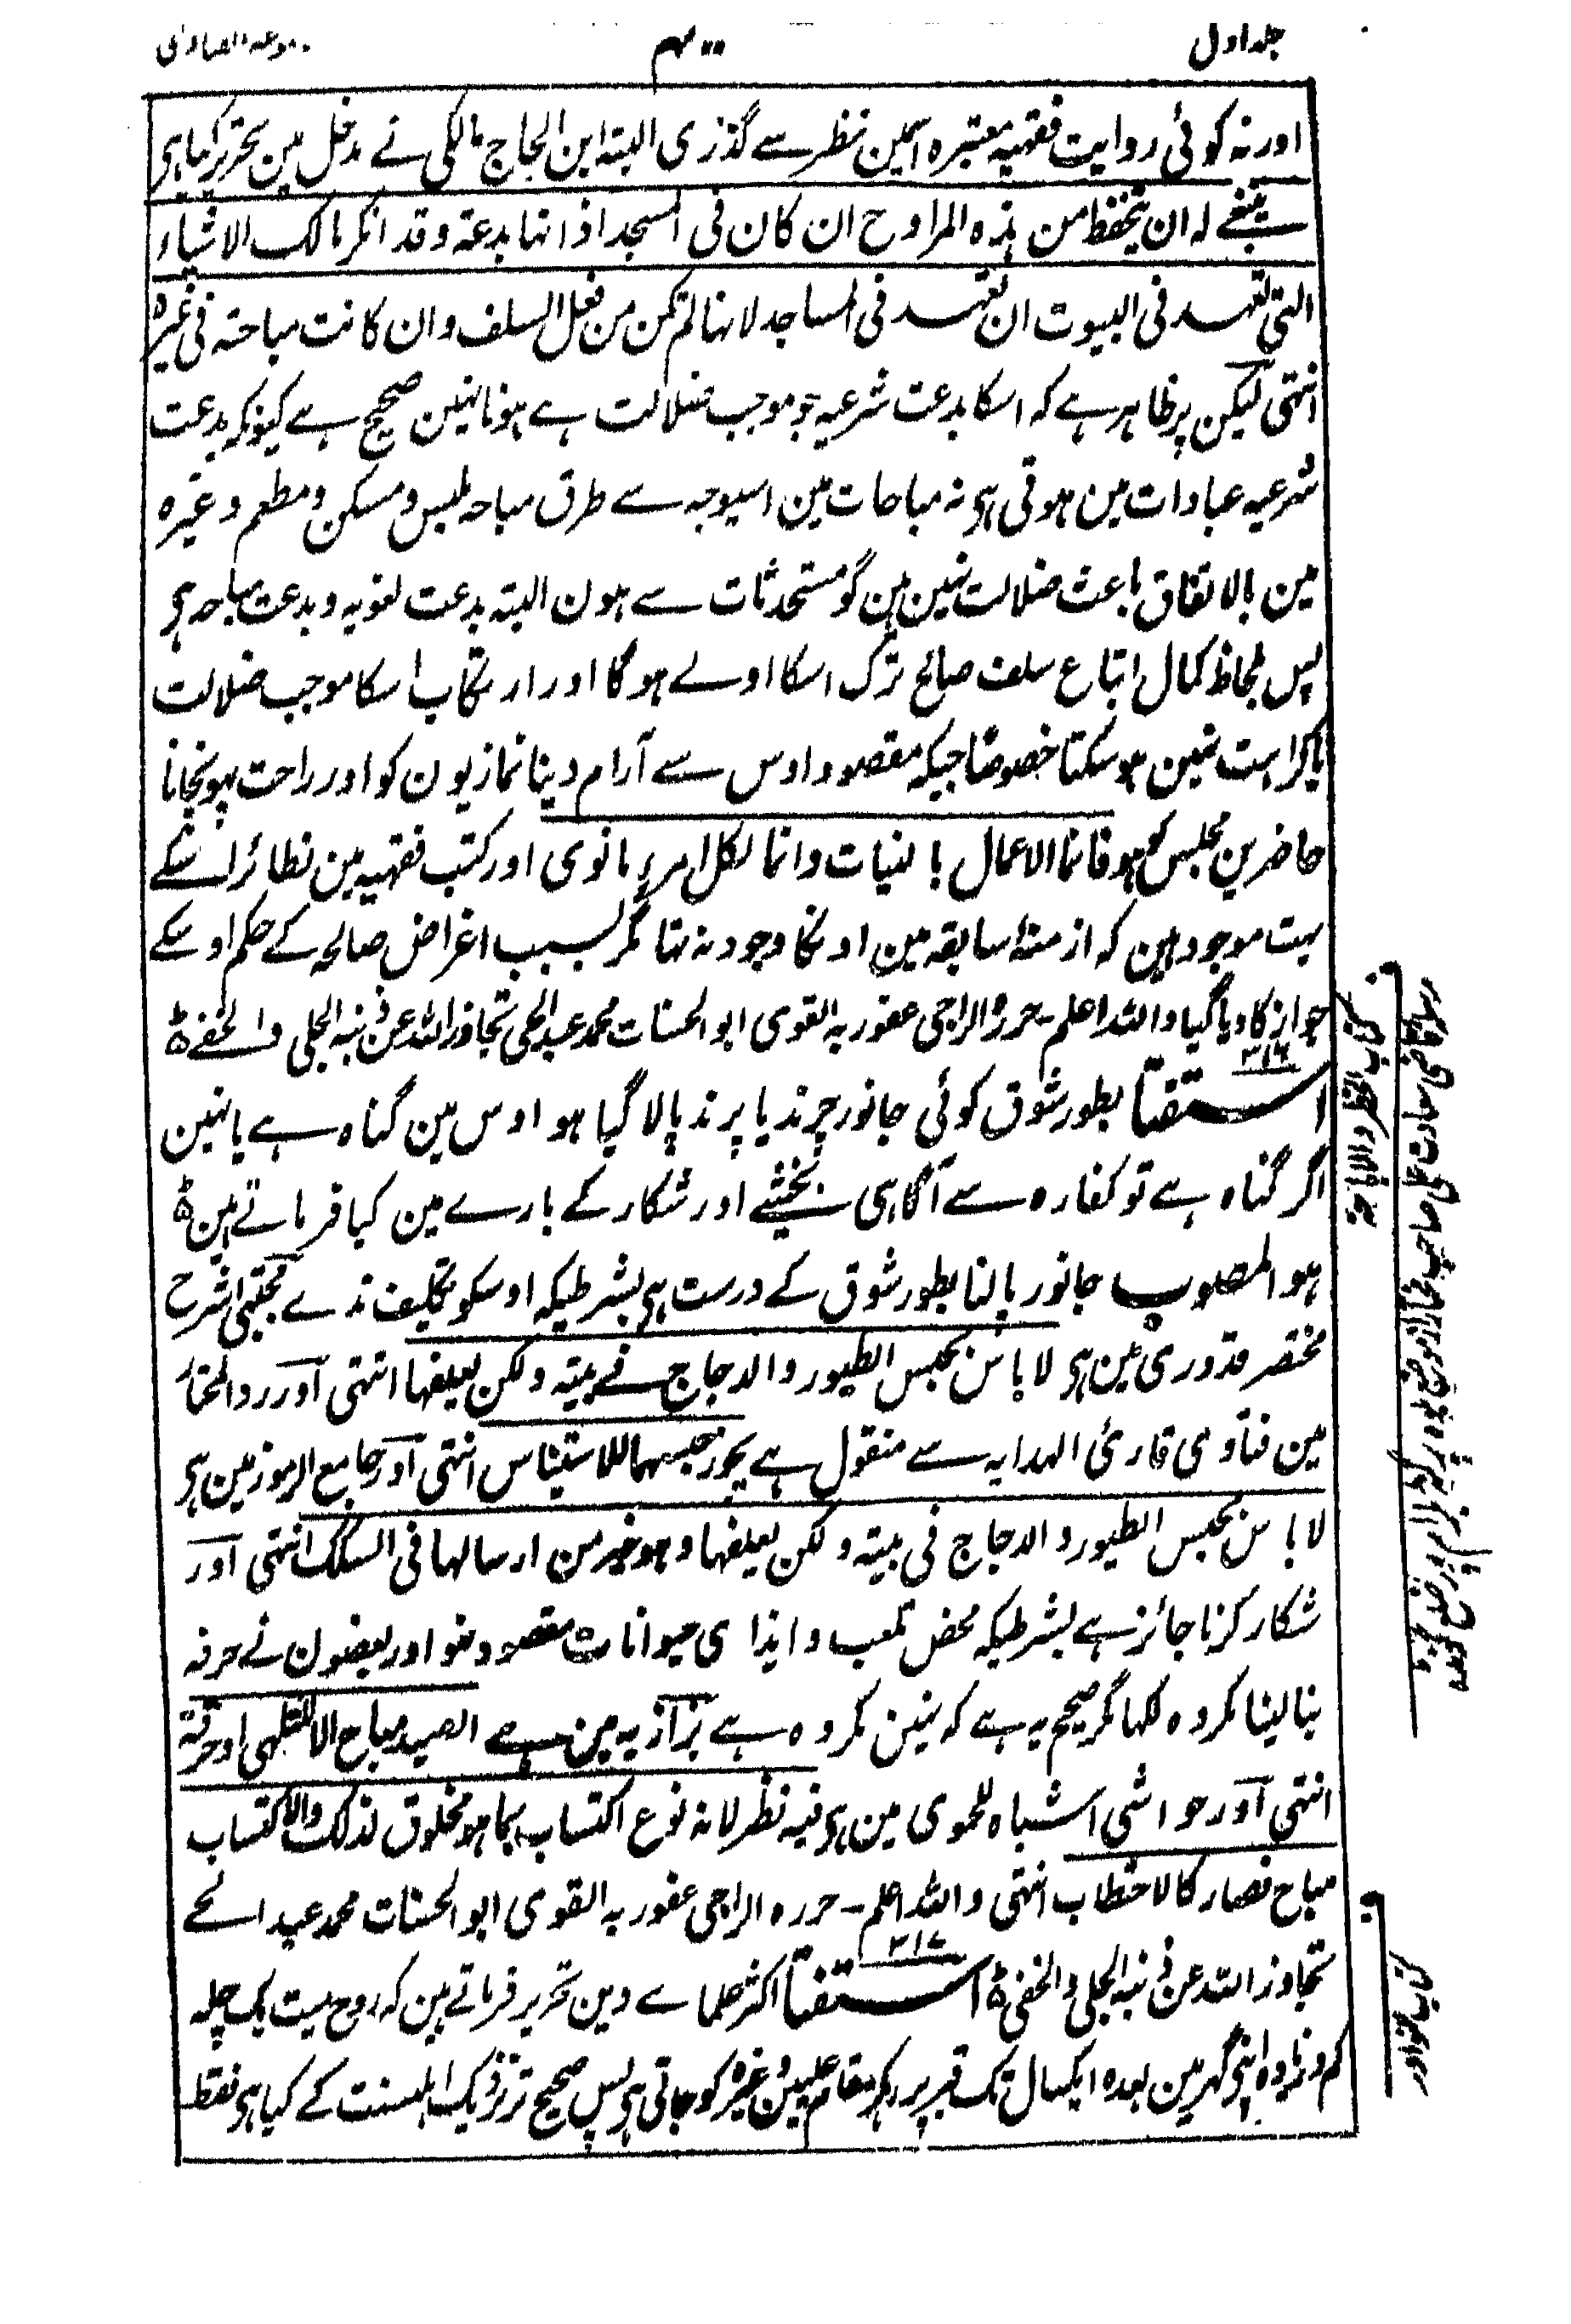 جلد اول
۴۰۰
اور نہ کوئی روایت فقہیہ معتبرہ اسمین نظر سے گذری البتہ ابن الحاج مالکی نے مدخل مین تحریر کیا ہی
ینبغے لہ ان یتحفظ من ہذہ المراوح ان کان فی المسجد اذ انہا بدعۃ وقد انکر مالک الاشیاء
التی تعہد فی البیوت ان تعہد فی المساجد لانہا لم تکن من فعل السلف وان کانت مباحۃ فی غیرہ
انتہی لیکن پر ظاہر ہے کہ اسکا بدعت شرعیہ جو موجب ضلالت ہے ہونا نہین صحیح ہے کیونکہ بدعت
شرعیہ عبادات مین ہوتی ہی نہ مباحات مین اسیوجہ سے طرق مباحہ ملبس و مسکن و مطعم وغیرہ
مین بالاتفاق باعث ضلالت نہین ہین گو مستحدثات سے ہون البتہ بدعت لغویہ و بدعت مباحہ ہی
پس بلحاظ کمال اتباع سلف صالح ترک اسکا اولے ہوگا اور ارتکاب اسکا موجب ضلالت
یا کراہت نہین ہو سکتا خصوصًا جبکہ مقصود اوس سے آرام دینا نمازیون کو اور راحت پہونچانا
حاضرین مجلس کو ہو فانما الاعمال بالنیات وانما لکل امرء ما نوی اور کتب فقہیہ مین نظائر اسکے
بہت موجود ہین کہ ازمنۂ سابقہ مین اونکا وجود نہ تہا مگر بسبب اغراض صالحہ کے حکم اوسکے
جواز کا دیا گیا واللہ اعلم۔ حررہ الراجی عفو ربہ القوی ابو الحسنات محمد عبد الحی تجاوز اللہ عن ذنبہ الجلی والخفے
۳۱۶
استفتا بطور شوق کوئی جانور چرند یا پرند پالا گیا ہو اوس مین گناہ ہے یا نہین
اگر گناہ ہے تو کفارہ سے آگاہی بخشئے اور شکار کے بارے مین کیا فرماتے ہین
ہو المصوب جانور پالنا بطور شوق کے درست ہی بشرطیکہ اوسکو تکلیف ندے مجتبی شرح
مختصر قدوری مین ہی لا باس بحبس الطیور والدجاج فے بیتہ ولکن یعلفہا انتہی اور رد المختار
مین فتاوی قارئ الہدایہ سے منقول ہے یجوز حبسہا للاستیناس انتہی اور جامع الرموز مین ہی
لا باس بحبس الطیور والدجاج فی بیتہ ولکن یعلفہا وہو خیر من ارسالہا فی السکک انتہی اور
شکار کرنا جائز ہے بشرطیکہ محض تلعب وایذای حیوانات مقصود نہو اور بعضون نے حرفہ
بنا لینا مکروہ لکہا مگر صحیح یہ ہے کہ نہین مکروہ ہے بزازیہ مین ہے الصید مباح الا للتلہی او حرفۃ
انتہی اور حواشی اشباہ للحموی مین ہی فیہ نظر لانہ نوع اکتساب بما ہو مخلوق لذلک والاکتساب
مباح فصار کالاحتطاب انتہی واللہ اعلم۔ حررہ الراجی عفو ربہ القوی ابو الحسنات محمد عبد الحے
تجاوز اللہ عن ذنبہ الجلی والخفی
۳۱۷
استفتا اکثر علماے دین تحریر فرماتے ہین کہ روح میت یک چلہ
کم و زیادہ اپنی گہر مین بعدہ ایکسال تک قبر پر رہکر مقام علیین وغیرہ کو جاتی ہی پس صحیح تر نزدیک اہلسنت کے کیا ہی فقط
کتاب النوادر